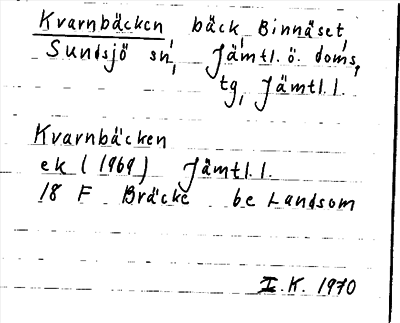 Kvarnbäcken, bäck, Binnäset,
Sundsjö sn, Jämtl. ö. doms.
tg, Jämtl. l.
Kvarnbäcken
ek (1969) Jämtl. l.
18 F Bräcke be Landsom
I.K. 1970